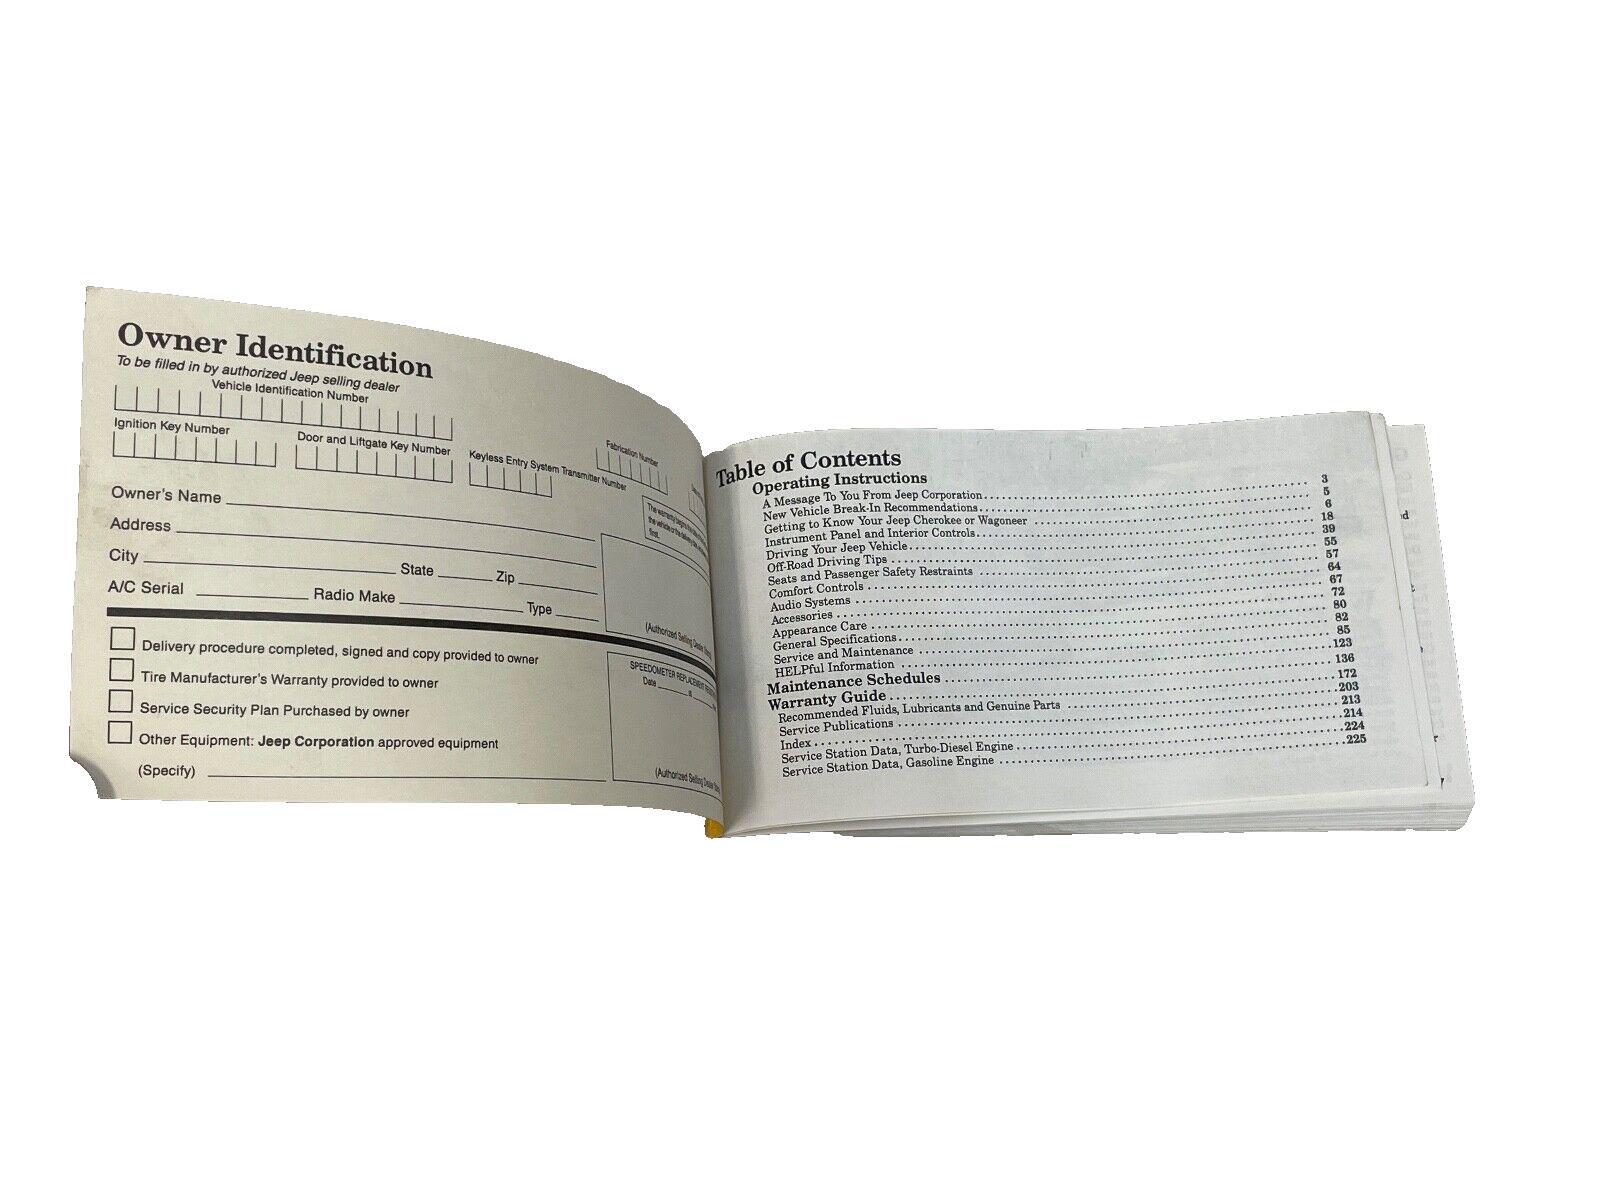 Owner Identification
To be filled in by authorized Jeep selling dealer
Vehicle Identification Number
Ignition Key Number
Door and Liftgate Key Number
Keyless Entry System Transmitter Number
Fabrication Number
The warranty begins
the vehicle or the delivery date,
first.
Owner's Name
Address
City State Zip
A/C Serial Radio Make Type
(Authorized Selling Dealer
Delivery procedure completed, signed and copy provided to owner
Tire Manufacturer's Warranty provided to owner
Service Security Plan Purchased by owner
Other Equipment: Jeep Corporation approved equipment
(Specify)
SPEEDOMETER REPLACEMENT
Date at
(Authorized Selling Dealer
Table of Contents
Operating Instructions
A Message To You From Jeep Corporation 3
New Vehicle Break-In Recommendations 5
Getting to Know Your Jeep Cherokee or Wagoneer 6
Instrument Panel and Interior Controls 18
Driving Your Jeep Vehicle 39
Off-Road Driving Tips 55
Seats and Passenger Safety Restraints 57
Comfort Controls 64
Audio Systems 67
Accessories 72
Appearance Care 80
General Specifications 82
Service and Maintenance 85
HELPful Information 123
Maintenance Schedules 136
Warranty Guide 172
Recommended Fluids, Lubricants and Genuine Parts 203
Service Publications 213
Index 214
Service Station Data, Turbo-Diesel Engine 224
Service Station Data, Gasoline Engine 225